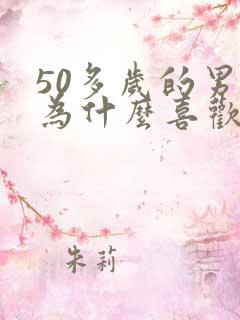 50多歲的男
為什麼喜歡
朱莉